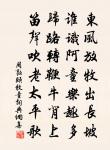 東風放牧出長坡
誰識阿童樂趣多
歸路轉鞭牛背上
笛聲吹老太平歌